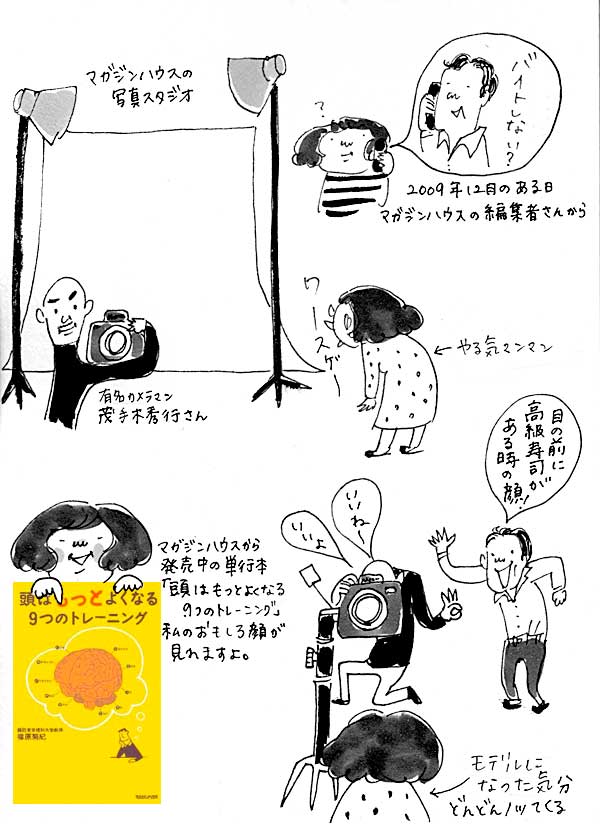 マガジンハウスの
写真スタジオ
バイトしない?
?
2009年12月のある日
マガジンハウスの編集者さんから
有名カメラマン
茂手木秀行さん
ワースゲー
←やる気マンマン
目の前に
高級寿司が
ある時の
顔!
いいね〜
いいよ
マガジンハウスから
発売中の単行本
「頭はもっとよくなる
9つのトレーニング」
私のおもしろ顔が
見れますよ。
頭はもっとよくなる
9つのトレーニング
諏訪東京理科大学教授
篠原菊紀
モデルに
なった気分
どんどんノッてくる